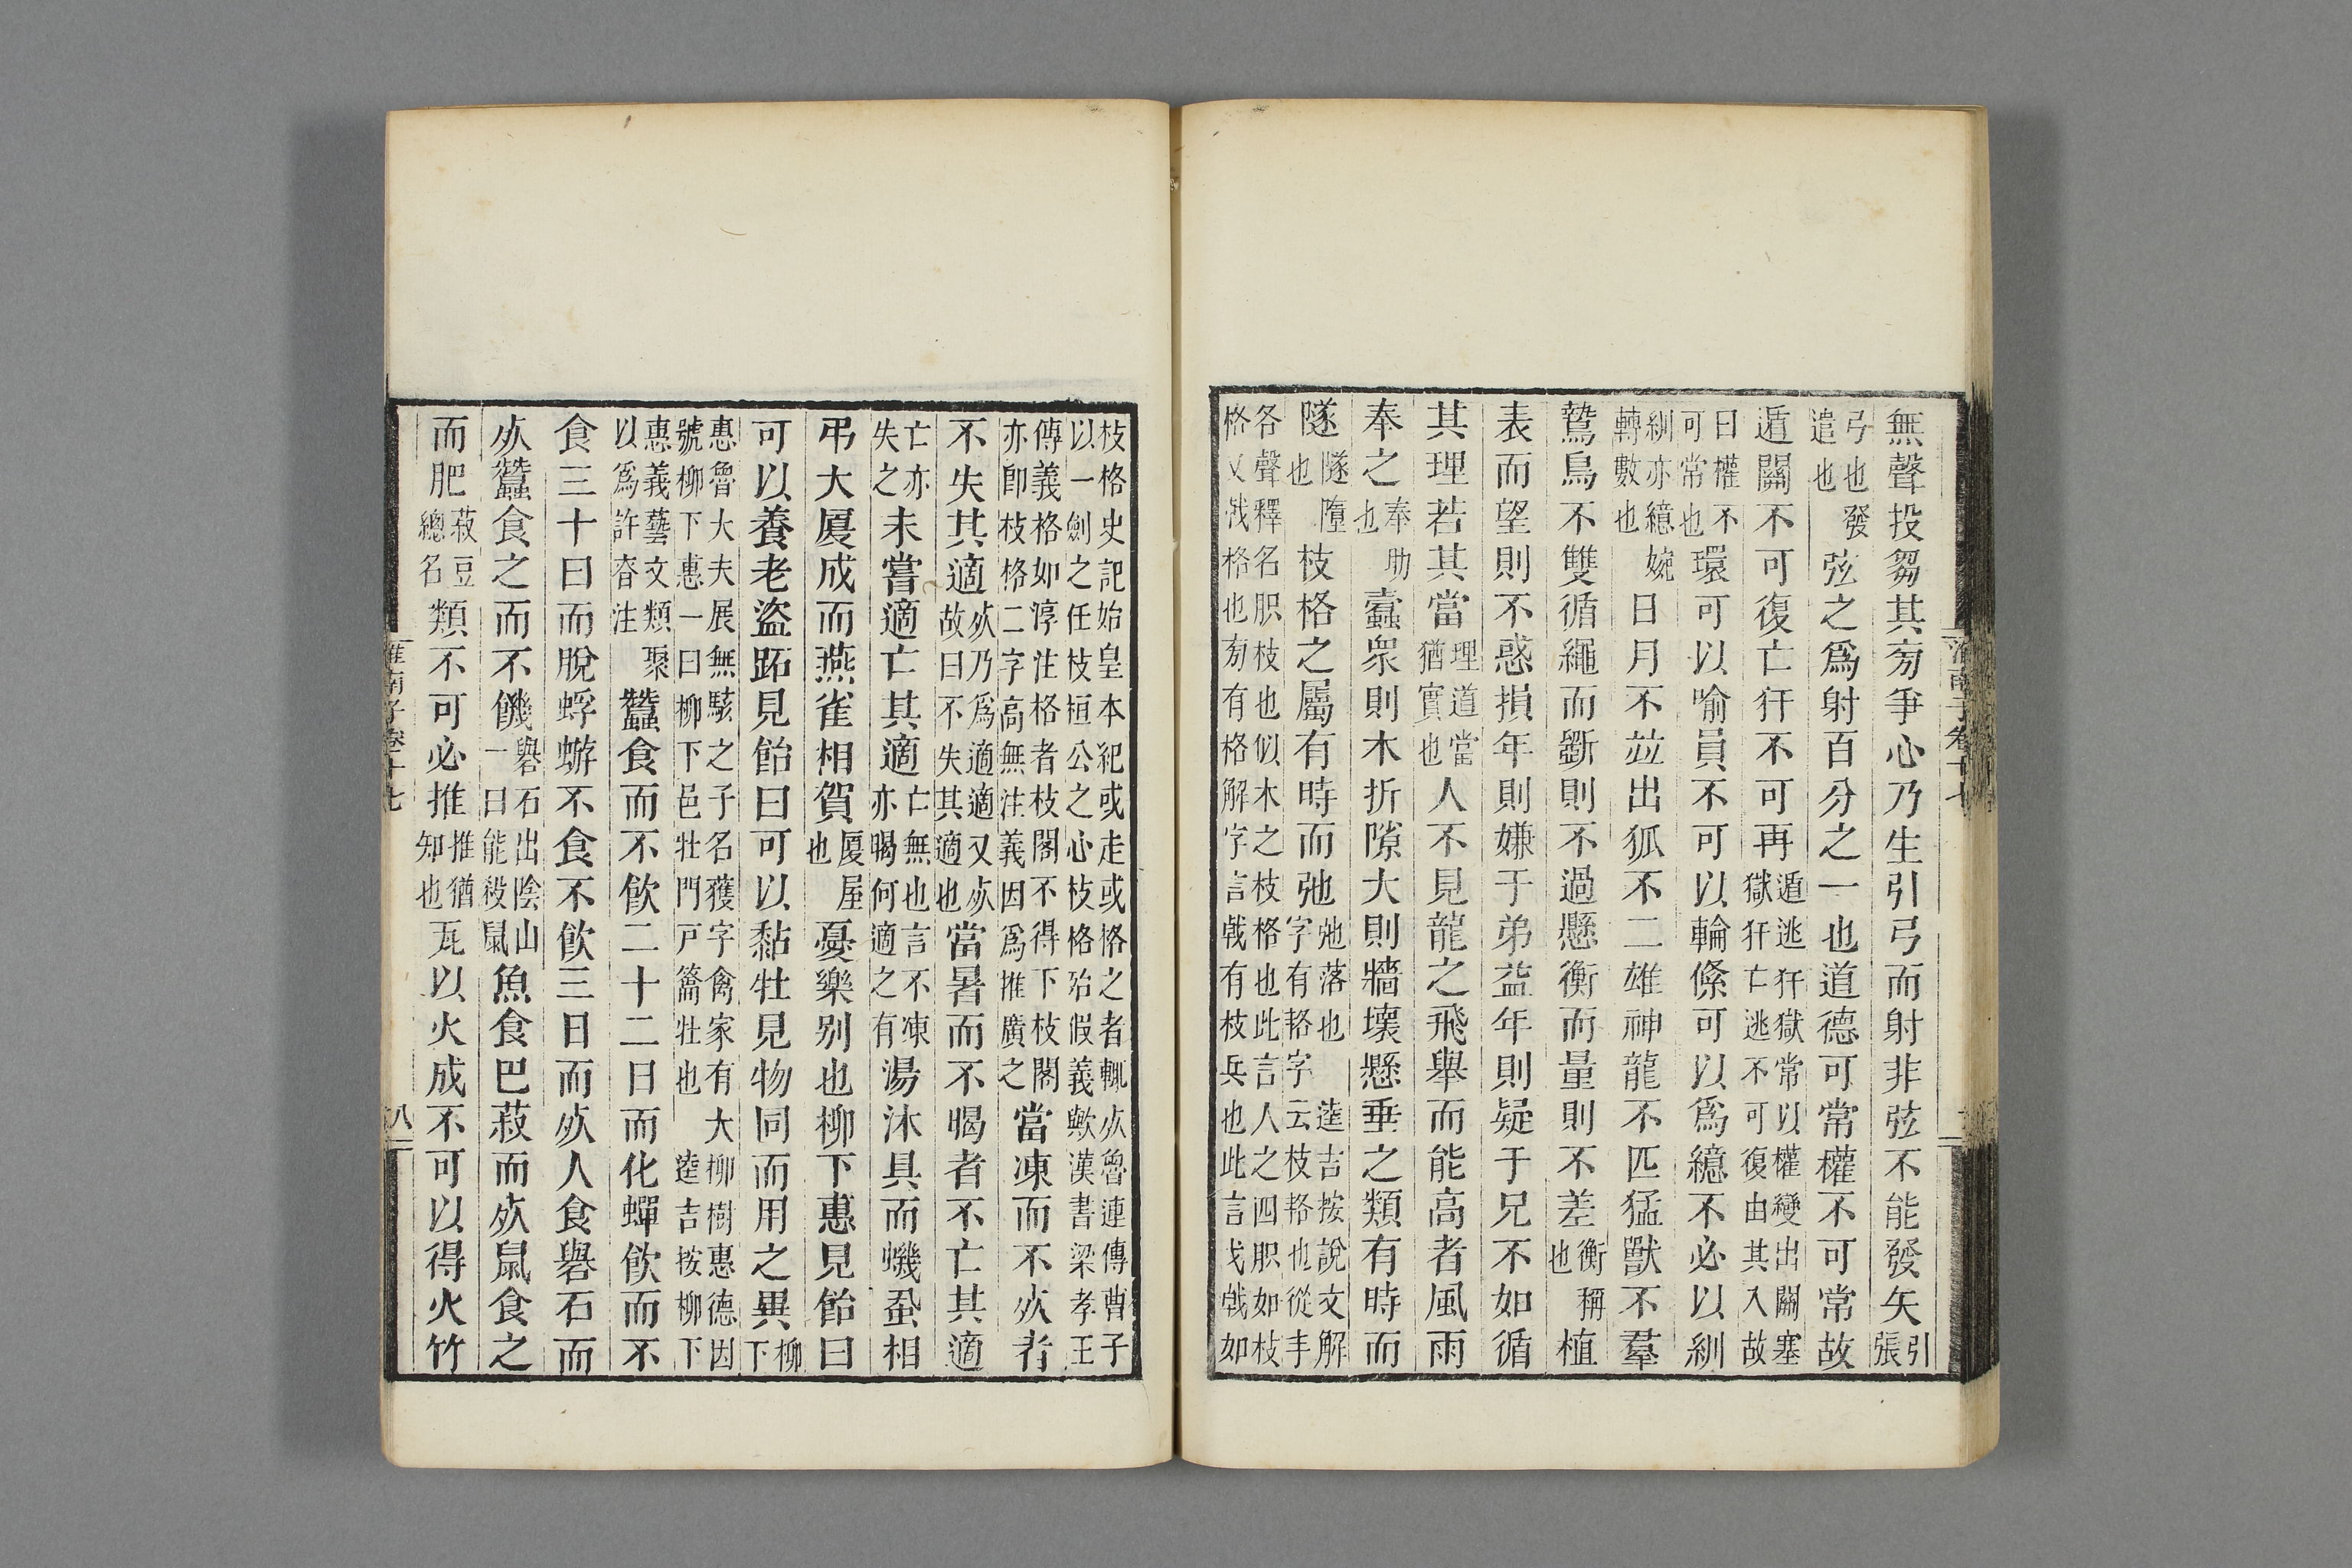 無聲投芻其㫄爭心乃生引弓而射非弦不能發矢引張
弓也發遣也弦之爲射百分之一也道德可常權不可常故
遁關不可復亡犴不可再遁逃犴獄常以權變出關塞獄犴亡逃不可復由其入故
曰權不可常也環可以喻員不可以輪絛可以爲繶不必以紃
紃亦繶婉轉數也日月不竝出狐不二雄神龍不匹猛獸不羣
鷙鳥不雙循繩而斵則不過懸衡而量則不差衡稱也植
表而望則不惑損年則嫌于弟益年則疑于兄不如循
其理若其當理道當猶實也人不見龍之飛舉而能高者風雨
奉之奉助也蠹衆則木折隙大則牆壞懸垂之類有時而
隧隧墮也枝格之屬有時而弛弛落也逵吉按說文解字有輅字云枝輅也從手
各聲釋名胑枝也似木之枝格也此言人之四胑如枝格又㦸格也㫄有格解字言㦸有枝兵也此言戈㦸如
枝格史記始皇本紀或走或格之者輒㱙魯連傳曹子以一劍之任枝桓公之心枝格殆假義歟漢書梁孝王
傳義格如淳注格者枝閣不得下枝閣亦卽枝格二字高無注義因爲推廣之當凍而不㱙者
不失其適㱙乃爲適適又㱙故曰不失其適也當暑而不暍者不亡其適
亡亦失之未嘗適亡其適亡無也言不凍亦暍何適之有湯沐具而蟣蝨相
弔大厦成而燕雀相賀厦屋也憂樂别也柳下惠見飴曰
可以養老盜跖見飴曰可以黏牡見物同而用之異柳下
惠魯大夫展無駭之子名獲字禽家有大柳樹惠德因號柳下惠一曰柳下邑牡門戸籥牡也逵吉按柳下
惠義藝文類聚以爲許昚注蠶食而不飮二十二日而化蟬飮而不
食三十日而脫蜉蝣不食不飮三日而㱙人食礜石而
㱙蠶食之而不饑礜石出陰山一曰能殺鼠魚食巴菽而㱙鼠食之
而肥菽豆總名類不可必推推猶知也瓦以火成不可以得火竹
淮南子卷十七
八